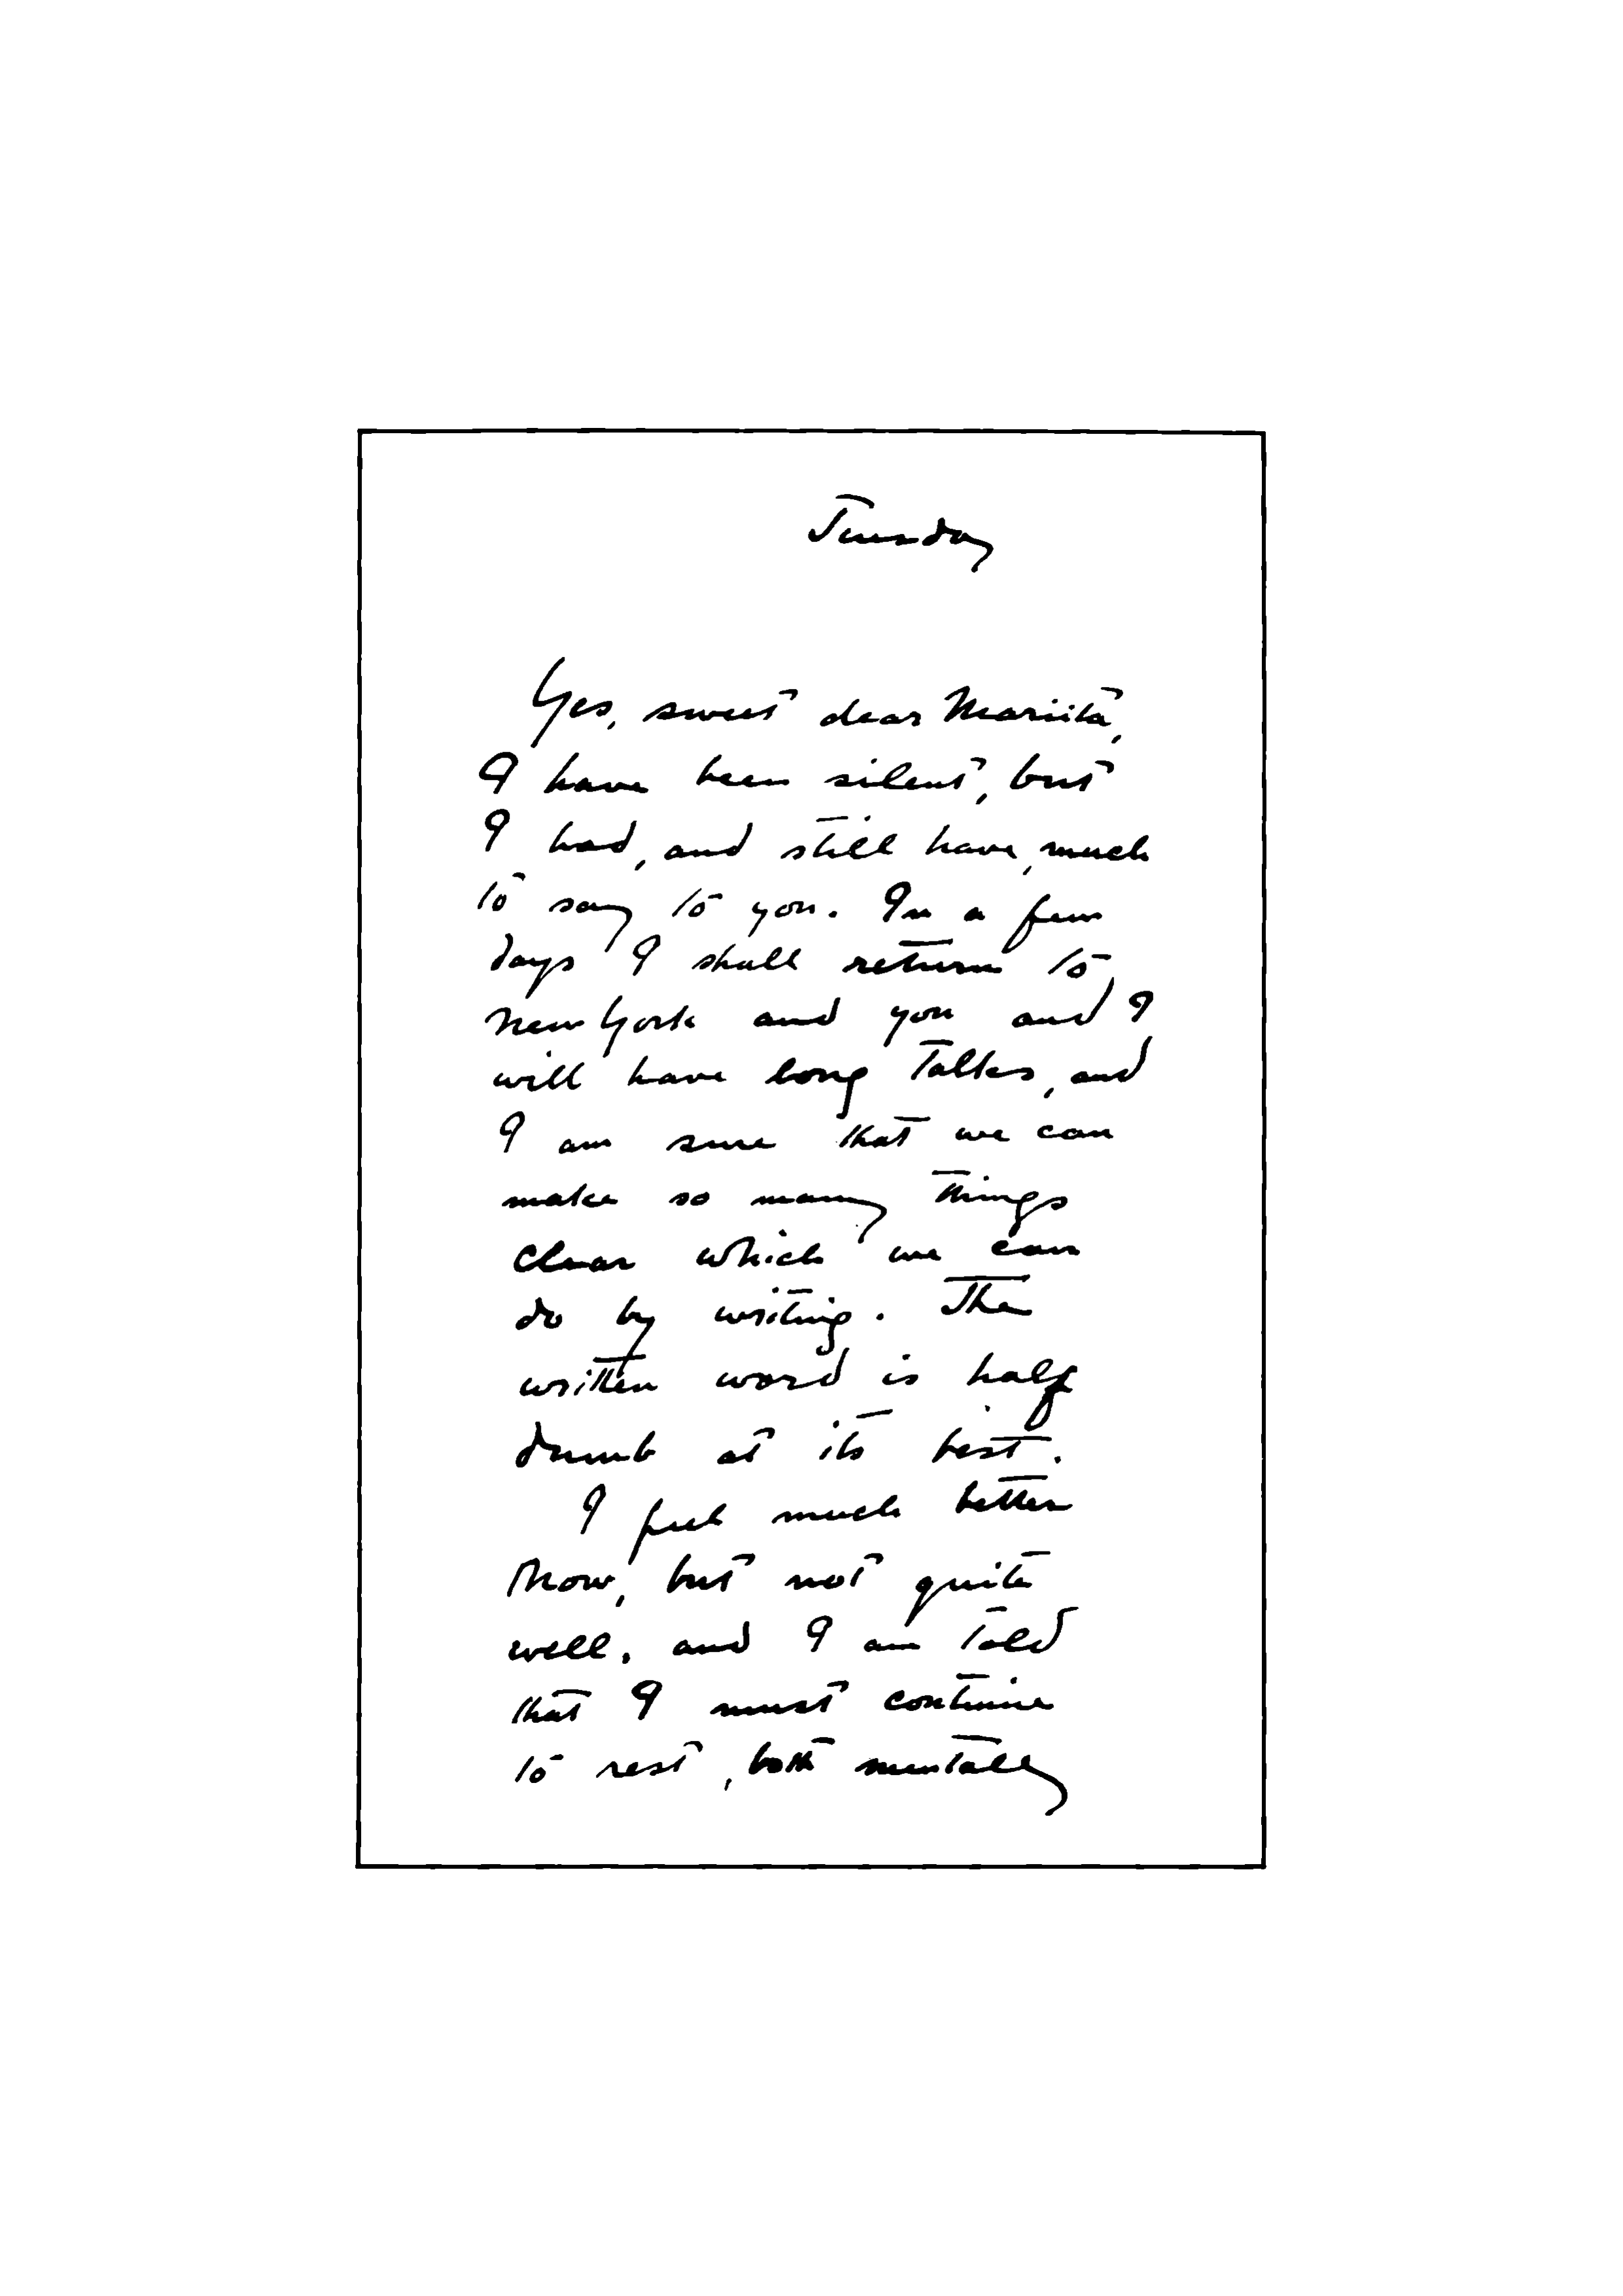 Tuesday
Yes, sweet dear Mariita,
I have been silent, but
I had, and still have, much
to say to you. In a few
days I shall return to
New York and you and I
will have long talks, and
I am sure that we can
make so many things
clear which we can
do by writing. The
written word is half
dumb at its best.
I feel much better
now, but not quite
well, and I am told
that I must continue
to rest, both mentally